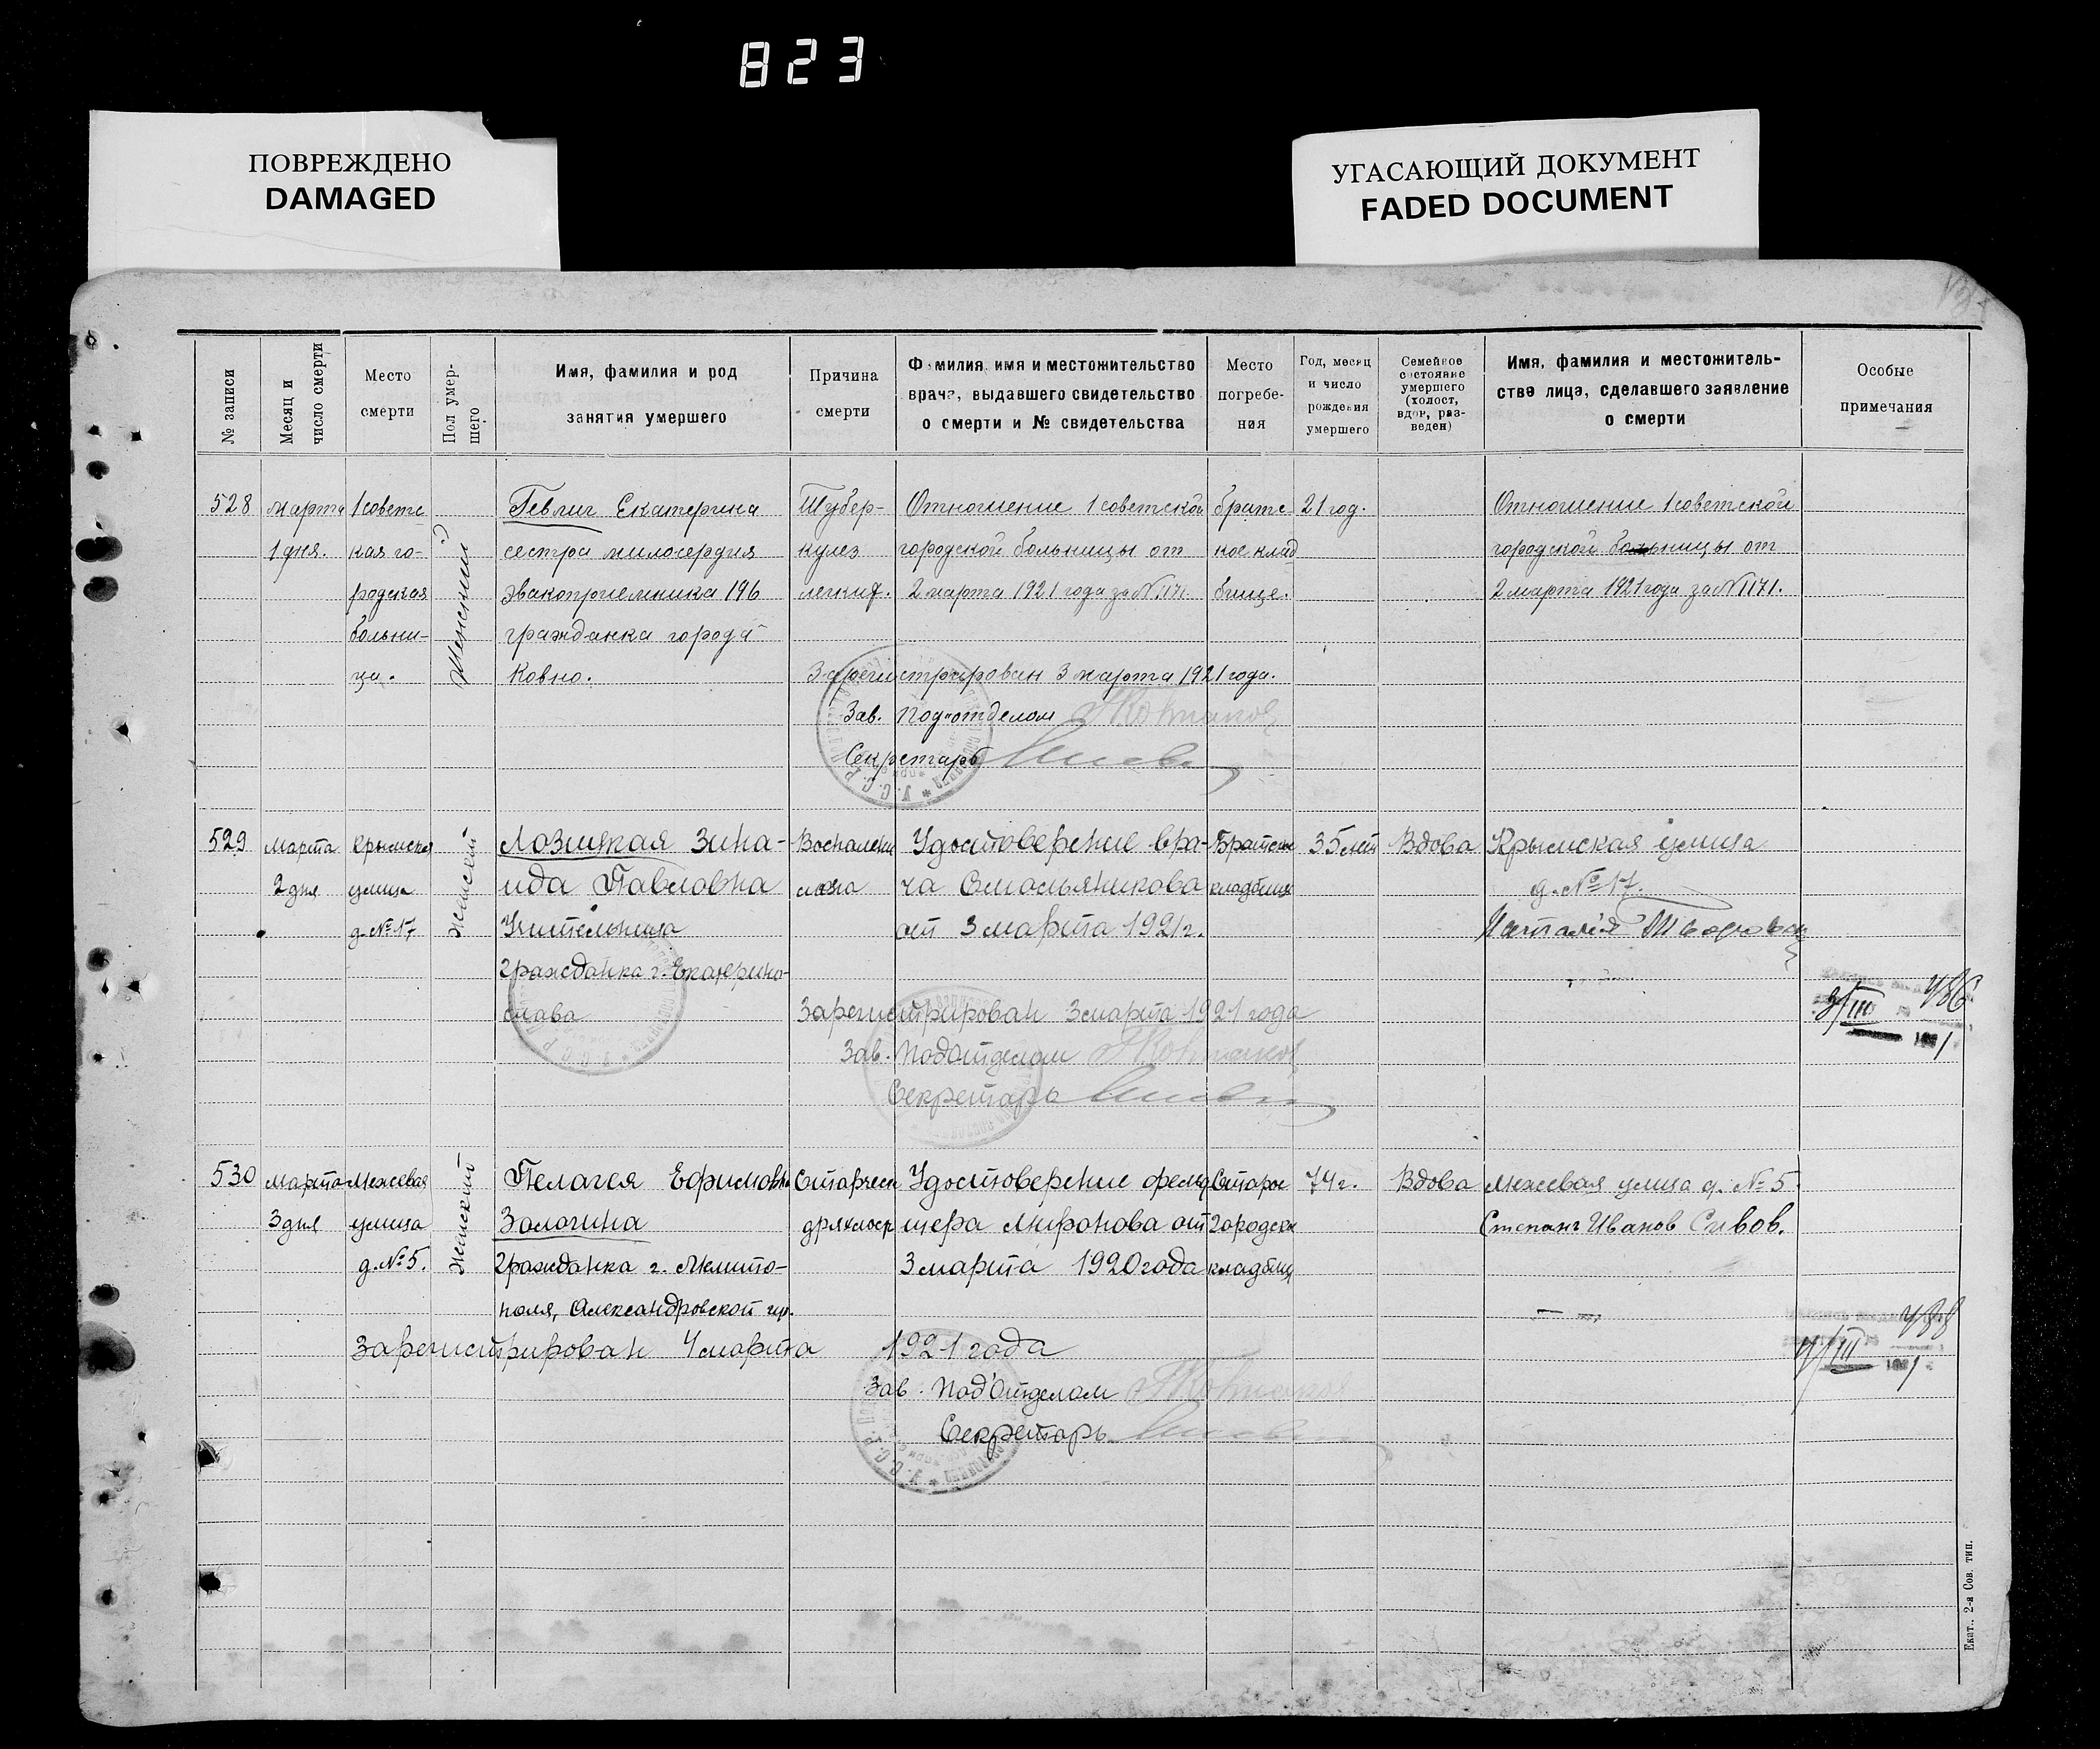 823
ПОВРЕЖДЕНО
DAMAGED
УГАСАЮЩИЙ ДОКУМЕНТ
FADED DOCUMENT
№ записи
Месяц и
число смерти
Место
смерти
Пол умер-
шего
Имя, фамилия и род
занятия умершего
Причина
смерти
Фамилия, имя и местожительство
врача, выдавшего свидетельство
о смерти и № свидетельства
Место
погребе-
ния
Год, месяц
и число
рождения
умершего
Семейное
состояние
умершего
(холост,
вдов, раз-
веден)
Имя, фамилия и местожитель-
ство лица, сделавшего заявление
о смерти
Особые
примечания
528
марта
1 дня.
1 советс
кая го-
родская
больни-
ца.
Женский
Гевлич Екатерина
сестра милосердия
эвакоприемника 196
гражданка города
Ковно.
Тубер-
кулез
легких.
Отношение 1 советской
городской больницы от
2 марта 1921 года за № 1171.
братс
кое клад
бище.
21 год.
Отношение 1 советской
городской больницы от
2 марта 1921 года за № 1171.
Зарегистрирован 3 марта 1921 года.
Зав. Под'отделом
Секретарь
529
Марта
2 дня
Крымская
улица
д. № 17
Женский
Лозицкая Зина-
ида Павловна
Учительница
Гражданка г. Екатерино-
слава
Удостоверение вра-
ча Смольянникова
от 3 марта 1921 г.
Братское
кладбище
35 лет
Вдова
Крымская улица
д. № 17.
Зарегистрирован 3 марта 1921 года
Зав. Подотделом
Секретарь
3/III 486
1921
530
Марта
3 дня
Межевая
улица
д. № 5.
Женский
Пелагея Ефимовна
Золотина
Гражданка г. Мелито-
поля, Александровской губ.
Старческ
дряхлост
Удостоверение фельд
шера Миронова от
3 марта 1920 года
Старое
городское
кладбищ
74 г.
Вдова
Межевая улица д. № 5.
Степанъ Иванов Сивов.
Зарегистрирован 4 марта 1921 года
Зав. Под'отделом
Секретарь
4/III 488
1921
Екат., 2-я Сов. тип.